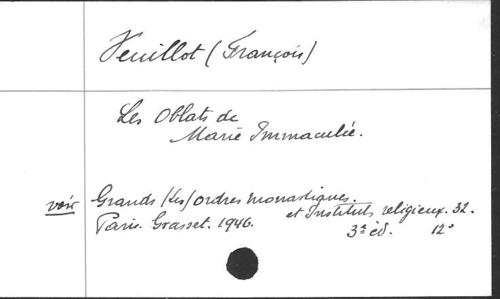 Veuillot (François)
Les Oblats de
Marie Immaculée.
voir Grands (Les) ordres monastiques
et Instituts religieux. 32.
Paris. Grasset. 1946. 3e éd. 12°